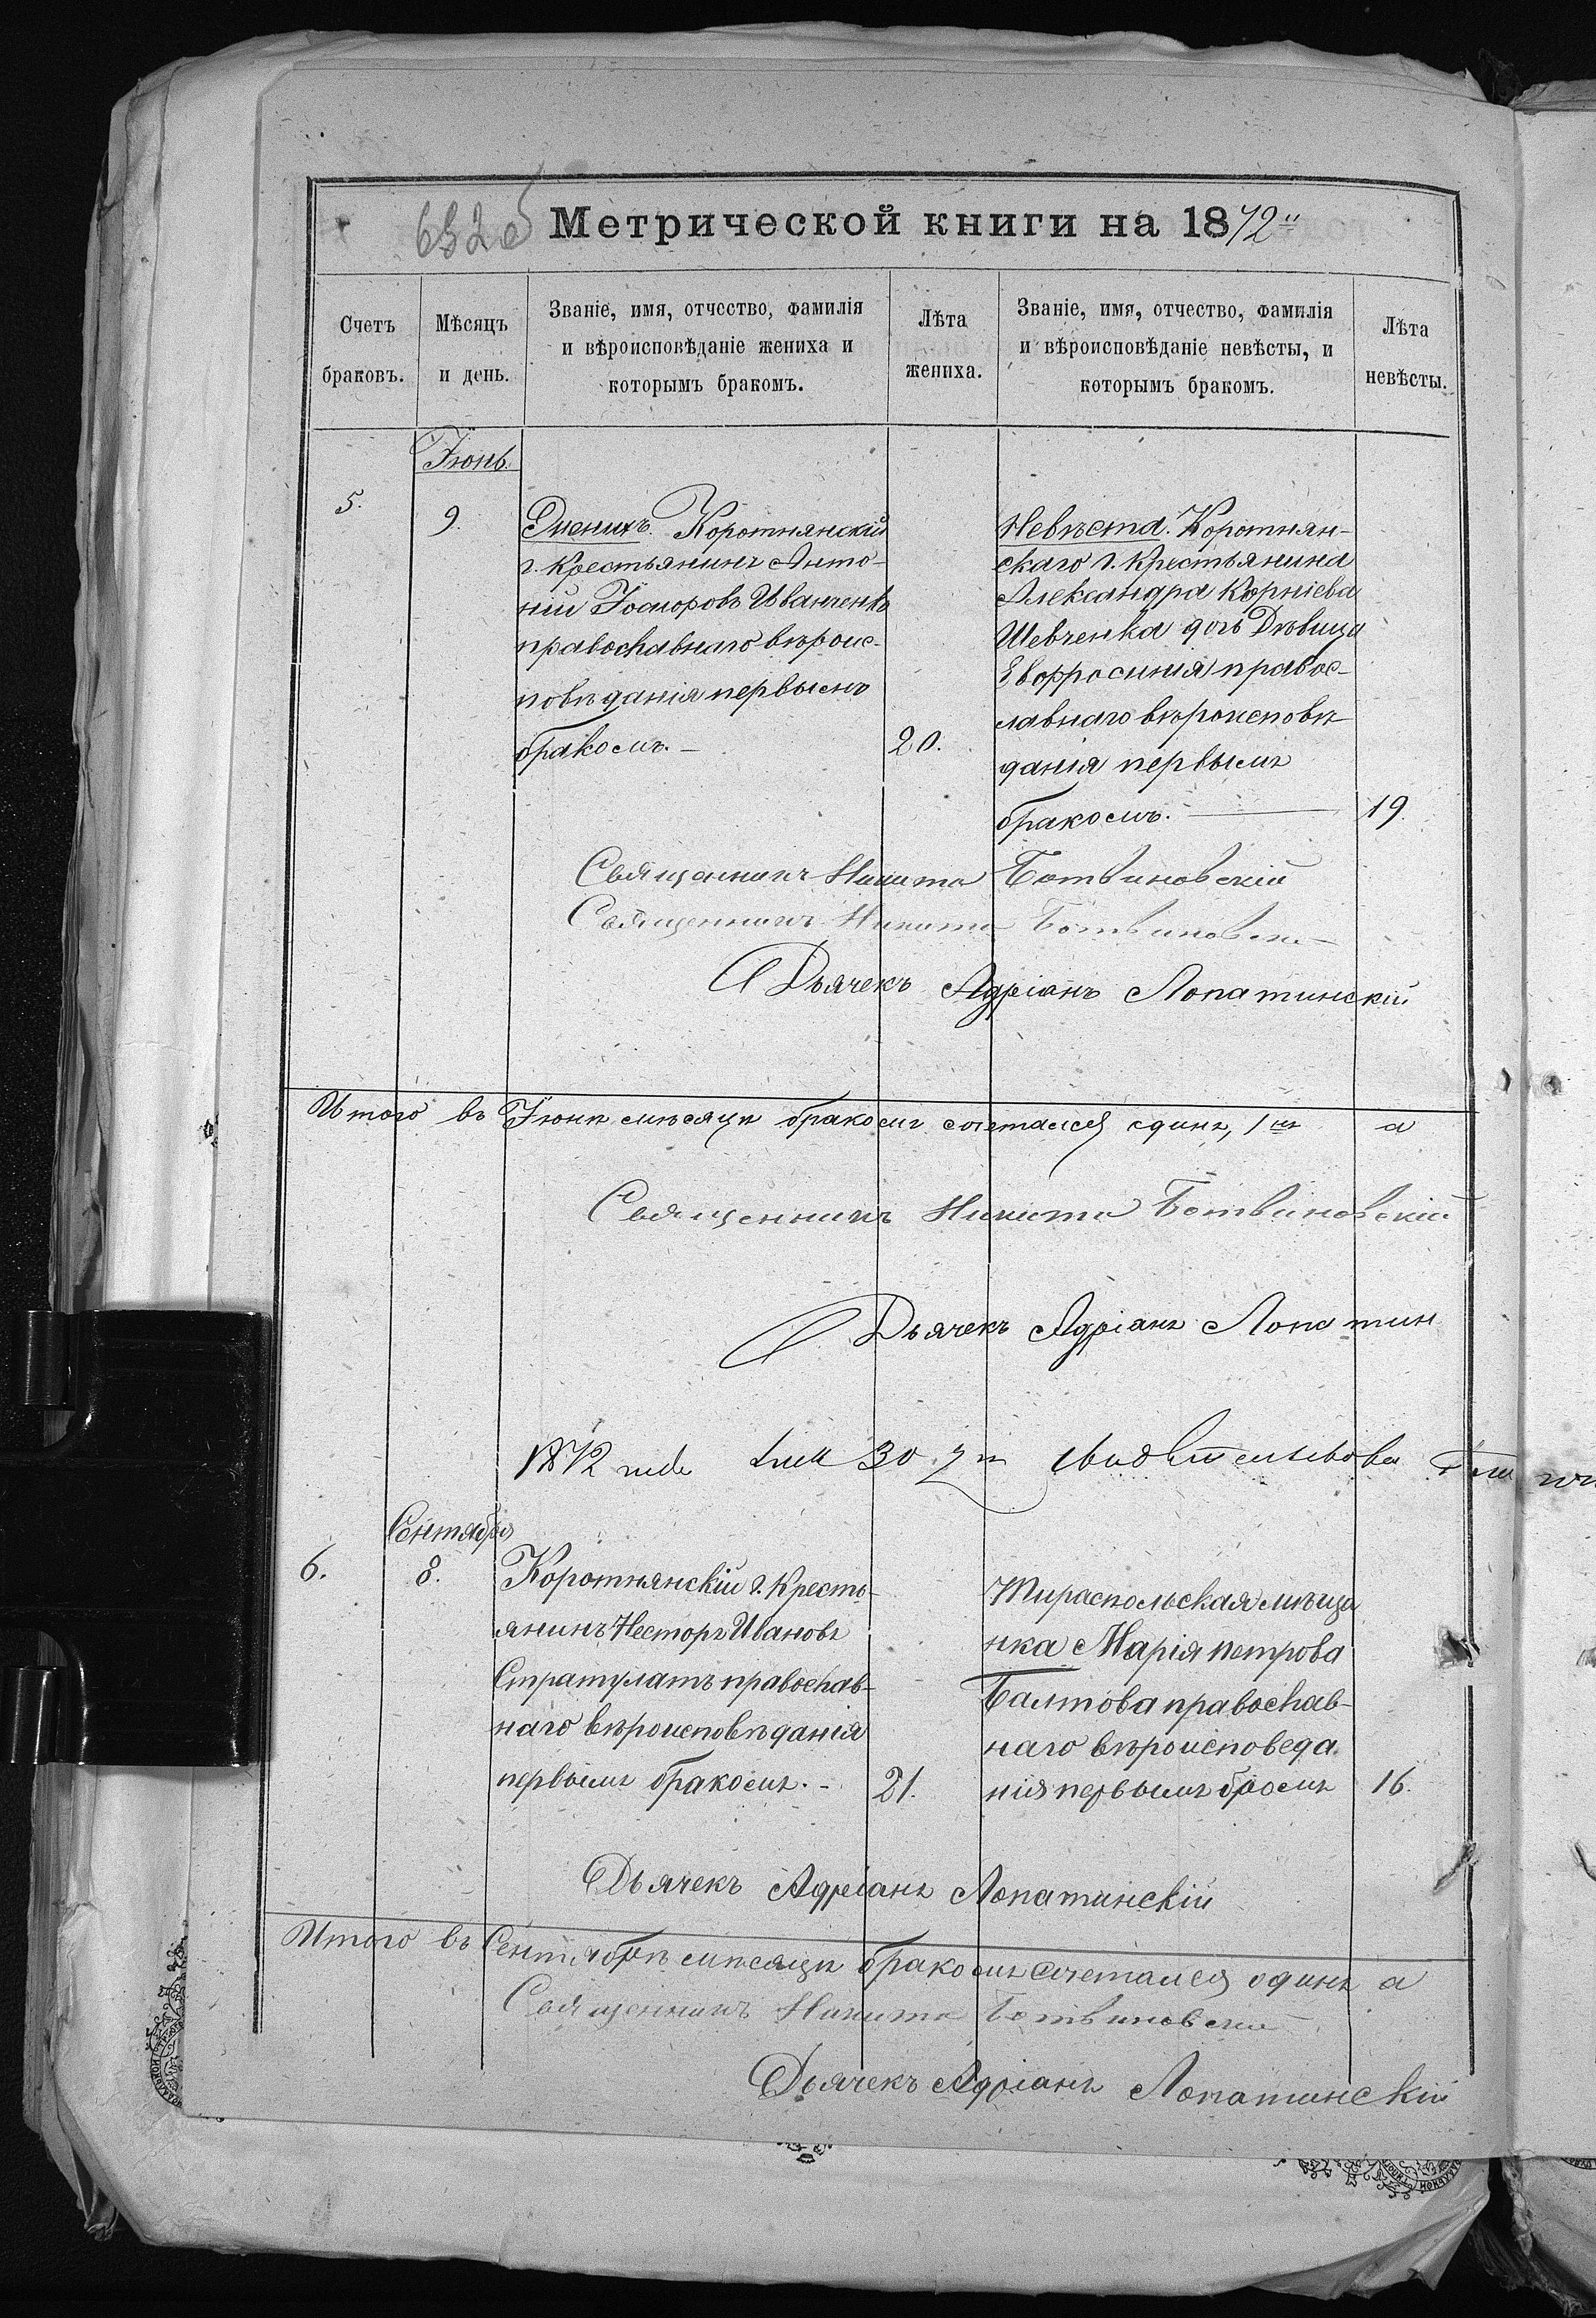 632 об
Метрической книги на 1872
Счетъ браковъ.
Мѣсяцъ и день.
Званіе, имя, отчество, фамилія и вѣроисповѣданіе жениха и которымъ бракомъ.
Лѣта жениха.
Званіе, имя, отчество, фамилія и вѣроисповѣданіе невѣсты, и которымъ бракомъ.
Лѣта невѣсты.
Іюнь
5.
9.
Женихъ. Коротнянскій
г. Крестьянинъ Анто-
ній Іосифовъ Иванченко
православнаго вѣроис-
повѣданія первымъ
бракомъ.—
20.
Невѣста. Коротнян-
скаго г. Крестьянина
Александра Корніева
Шевченка дочь Дѣвица
Евфросинія правос-
лавнаго вѣроисповѣ-
данія первымъ
бракомъ.
19.
Священникъ Никита Ботвиновскій
Священникъ Никита Ботвиновскій
Дьячекъ Адріанъ Лопатинскій
Итого въ Іюнѣ мѣсяцѣ бракомъ сочетался одинъ, 1 а
Священникъ Никита Ботвиновскій
Дьячекъ Адріанъ Лопатин
1872 30
Сентября
6.
8.
Коротнянскій г. Кресть-
янинъ Несторъ Ивановъ
Стратулатъ православ-
наго вѣроисповѣданія
первымъ бракомъ.-
21.
Тираспольская мѣща
нка Марія Петрова
Балтова православ-
наго вѣроисповеда
нія первымъ браомъ
16.
Дьячекъ Адріанъ Лопатинскій
Итого въ Сентябрѣ мѣсяцѣ бракомъ сочетался одинъ а
Священникъ Никита Ботвиновскій
Дьячекъ Адріанъ Лопатинскій